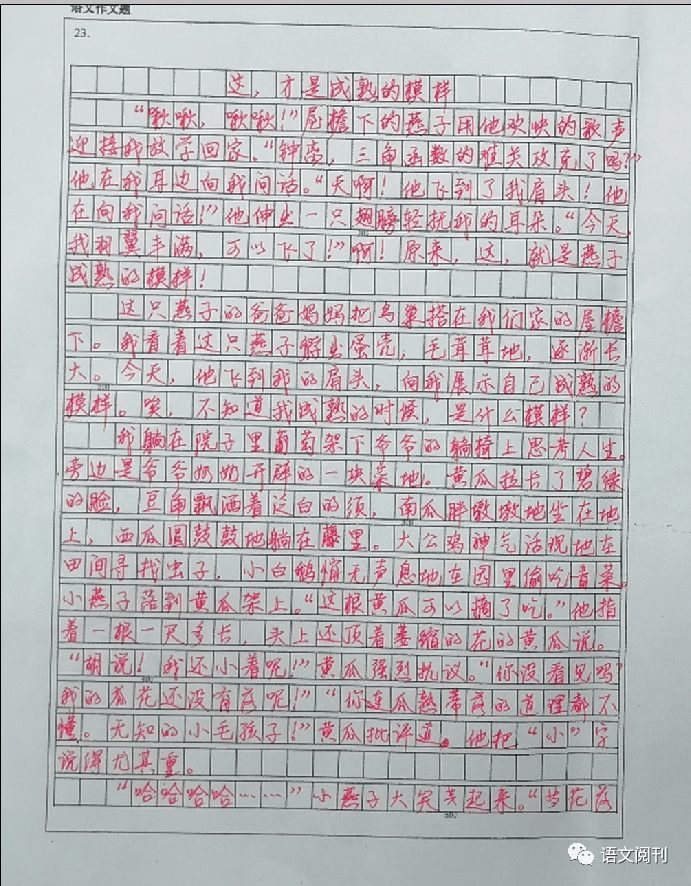 语文作文题
23.
这，才是成熟的模样
“啾啾，啾啾！”屋檐下的燕子用他欢快的歌声
迎接我放学回家。“钟亮，三角函数的难关攻克了吗？”
他在我耳边向我问话。“天啊！他飞到了我肩头！他
在向我问话！”他伸出一只翅膀轻抚我的耳朵。“今天，
我羽翼丰满，可以飞了！”啊！原来，这，就是燕子
成熟的模样！
这只燕子的爸爸妈妈把鸟巢搭在我们家的屋檐
下。我看着这只燕子孵出蛋壳，毛茸茸地，逐渐长
大。今天，他飞到我的肩头，向我展示自己成熟的
模样。唉，不知道我成熟的时候，是什么模样？
我躺在院子里葡萄架下爷爷的躺椅上思考人生。
旁边是爷爷奶奶开辟的一块菜地。黄瓜拉长了碧绿
的脸，豆角飘洒着泛白的须，南瓜胖墩墩地坐在地
上，西瓜圆鼓鼓地躺在藤里。大公鸡神气活现地在
田间寻找虫子，小白鹅悄无声息地在园里偷吃青菜。
小燕子落到黄瓜架上。“这根黄瓜可以摘了吃。”他指
着一根一尺多长，头上还顶着萎缩的花的黄瓜说。
“胡说！我还小着呢！”黄瓜强烈抗议。“你没看见吗？
我的瓜花还没有落呢！”“你连瓜熟蒂落的道理都不
懂。无知的小毛孩子！”黄瓜批评道。他把“小”字
说得尤其重。
“哈哈哈哈……”小燕子大笑起来。“等花落
语文阅刊